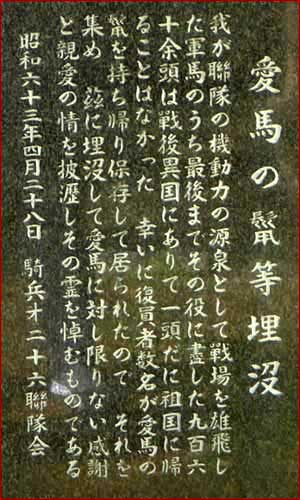 愛馬の鬣等埋没
我が聯隊の機動力の源泉として戰場を雄飛し
た軍馬のうち最後までその役に盡した九百六
十余頭は戦後異国にありて一頭だに祖国に帰
ることはなかった　幸いに復員者数名が愛馬の
鬣を持ち帰り保存して居られたので　それを
集め　茲に埋没して愛馬に対し限りない感謝
と親愛の情を披瀝しその霊を悼むものである
昭和六十三年四月二十八日　騎兵才二十六聯隊会